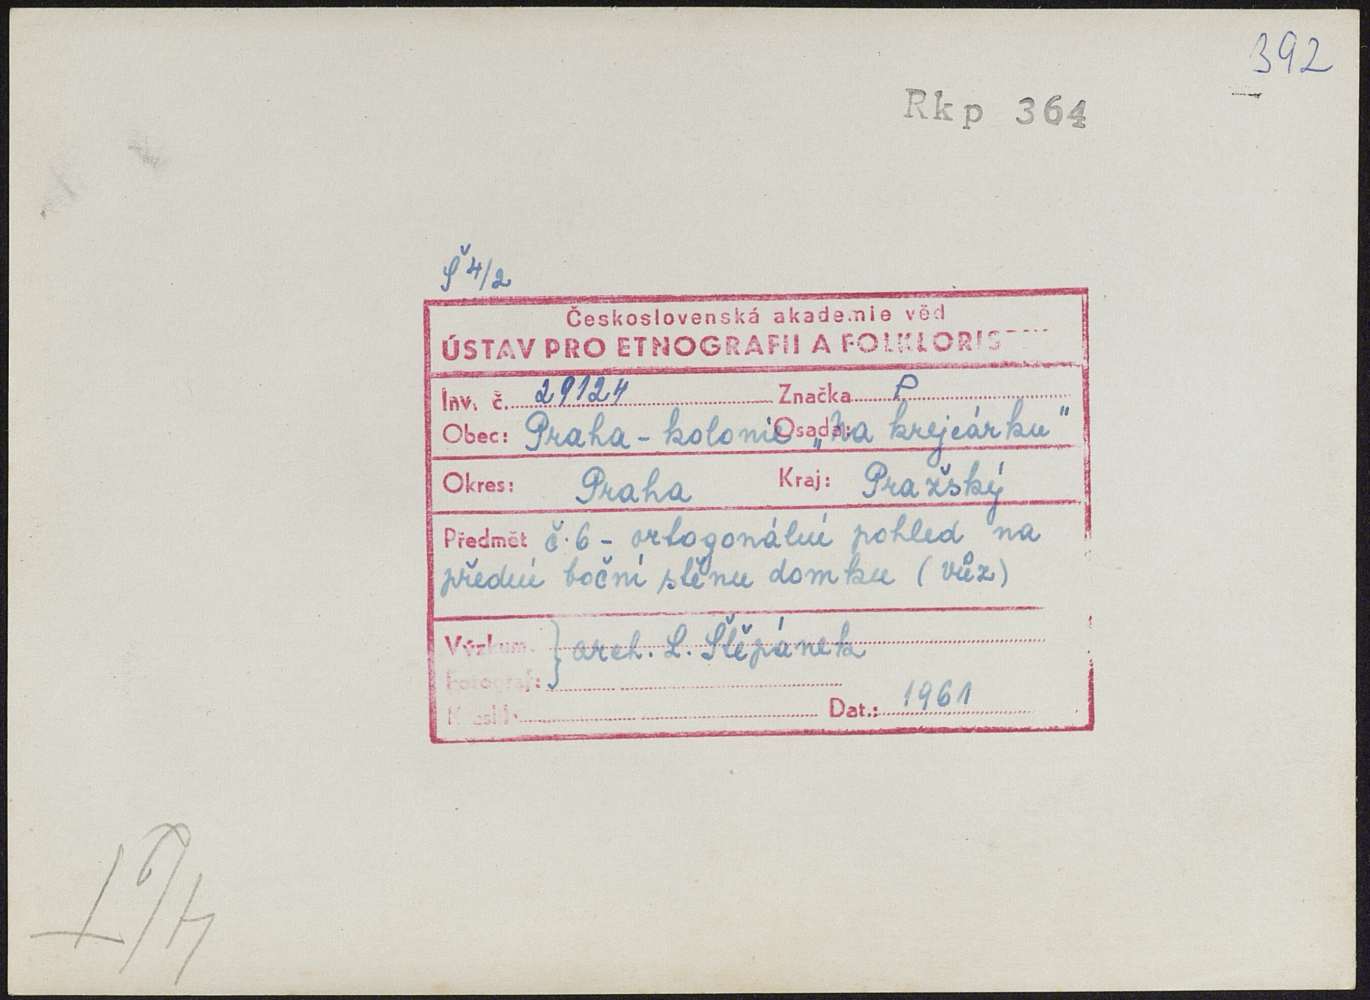 392
Rkp 364
Š 4/2
Československá akademie věd
ÚSTAV PRO ETNOGRAFII A FOLKLORIS
Inv. č. 29124 Značka P
Obec: Praha - kolonie Osada: „Na krejcárku"
Okres: Praha Kraj: Pražský
Předmět č. 6 - ortogonální pohled na
přední boční stěnu domku (vůz)
Výzkum: } arch. L. Štěpánek
Fotograf:
Dat.: 1961